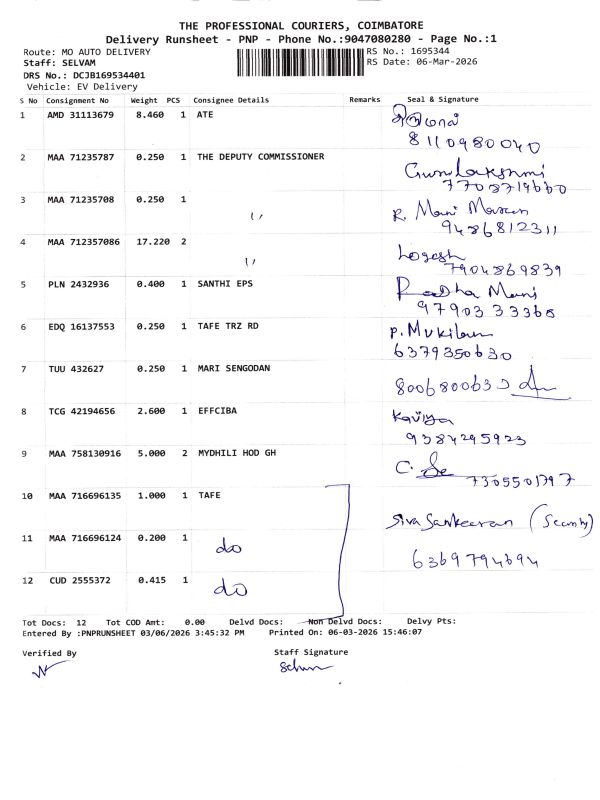 THE PROFESSIONAL COURIERS, COIMBATORE
Delivery Runsheet - PNP - Phone No.:9047080280 - Page No.:1
Route: MO AUTO DELIVERY RS No.: 1695344
Staff: SELVAM RS Date: 06-Mar-2026
DRS No.: DCJB169534401
Vehicle: EV Delivery
S No Consignment No Weight PCS Consignee Details Remarks Seal & Signature
1 AMD 31113679 8.460 1 ATE
8110980040
2 MAA 71235787 0.250 1 THE DEPUTY COMMISSIONER Gurulakshmi
7708719660
3 MAA 71235708 0.250 1
" R. Mani Maran
9486812311
4 MAA 712357086 17.220 2
" Logesh
7904869839
5 PLN 2432936 0.400 1 SANTHI EPS Radha Mani
9790333366
6 EDQ 16137553 0.250 1 TAFE TRZ RD P. Mukilan
6379350630
7 TUU 432627 0.250 1 MARI SENGODAN
8006800630
8 TCG 42194656 2.600 1 EFFCIBA Kaviya
9384295923
9 MAA 758130916 5.000 2 MYDHILI HOD GH C.
7305501797
10 MAA 716696135 1.000 1 TAFE
Siva Sankaran (Security)
11 MAA 716696124 0.200 1 do
6369794694
12 CUD 2555372 0.415 1 do
Tot Docs: 12 Tot COD Amt: 0.00 Delvd Docs: Non Delvd Docs: Delvy Pts:
Entered By :PNPRUNSHEET 03/06/2026 3:45:32 PM Printed On: 06-03-2026 15:46:07
Verified By Staff Signature